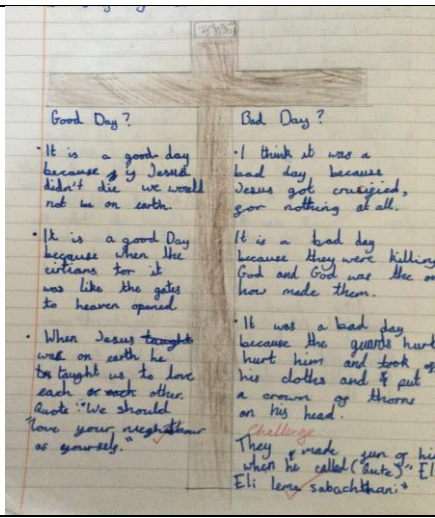 Good Day?
· It is a good day
because if Jesus
didn't die we would
not be on earth.
· It is a good Day
because when the
cirtians tor it
was like the gates
to heaven opened
· When Jesus taught
was on earth he
taught us to love
each or each other.
Quote: "We should
"love your neghbour
as yourself."
Bad Day?
· I think it was a
bad day because
Jesus got crucified,
for nothing at all.
It is a bad day
because they were killing
God and God was the
how made them.
· It was a bad day
because the guards hurt
hurt him and took of
his cloths and put
a crown of thorns
on his head.
Challenge
They made fun of
when he called (Qute) "
Eli lema sabachthani"